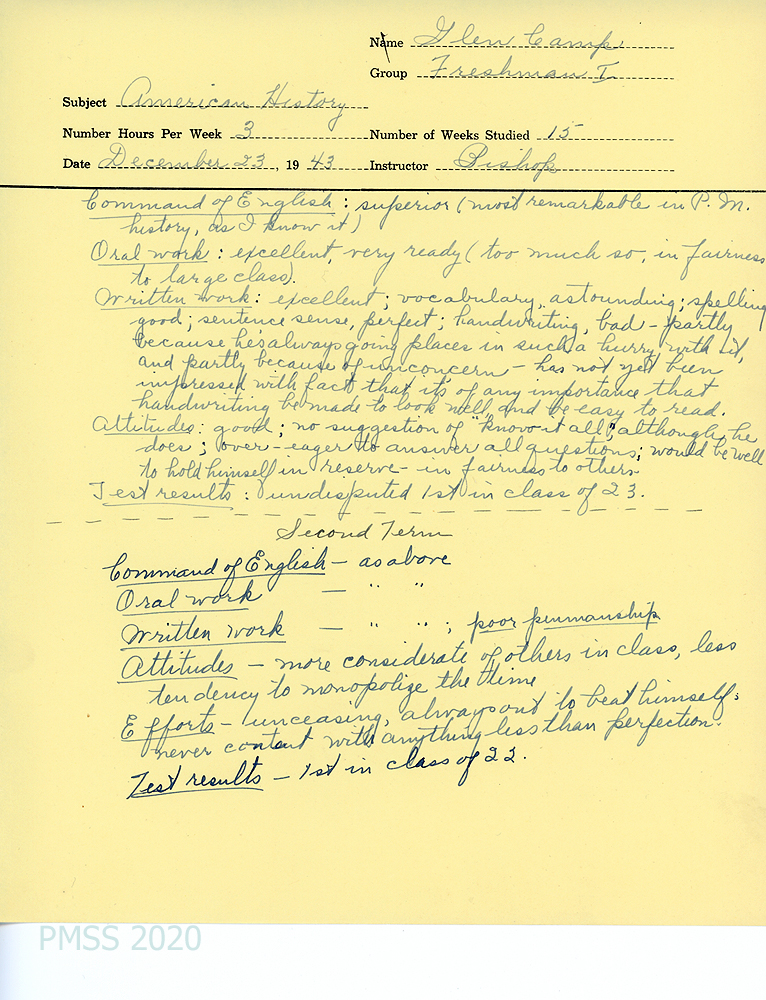 Name Glen Camp
Group Freshman I
Subject American History
Number Hours Per Week 3 Number of Weeks Studied 15
Date December 23, 1943 Instructor Bishop
Command of English: superior (most remarkable in P. M.
history, as I know it)
Oral work: excellent, very ready (too much so, in fairness
to large class).
Written work: excellent; vocabulary, astounding; spelling
good; sentence sense, perfect; handwriting, bad - partly
because he's always going places in such a hurry with it,
and partly because of unconcern - has not yet been
impressed with fact that it's of any importance that
handwriting be made to look well and be easy to read.
Attitudes: good; no suggestion of "know-it all", although he
does; over-eager to answer all questions; would be well
to hold himself in reserve - in fairness to others
Test results: undisputed 1st in class of 23.
Second Term
Command of English - as above
Oral work - " "
Written work - " "; poor penmanship
Attitudes - more considerate of others in class, less
tendency to monopolize the time
Efforts - unceasing, always out to beat himself;
never content with anything less than perfection.
Test results - 1st in class of 22.
PMSS 2020